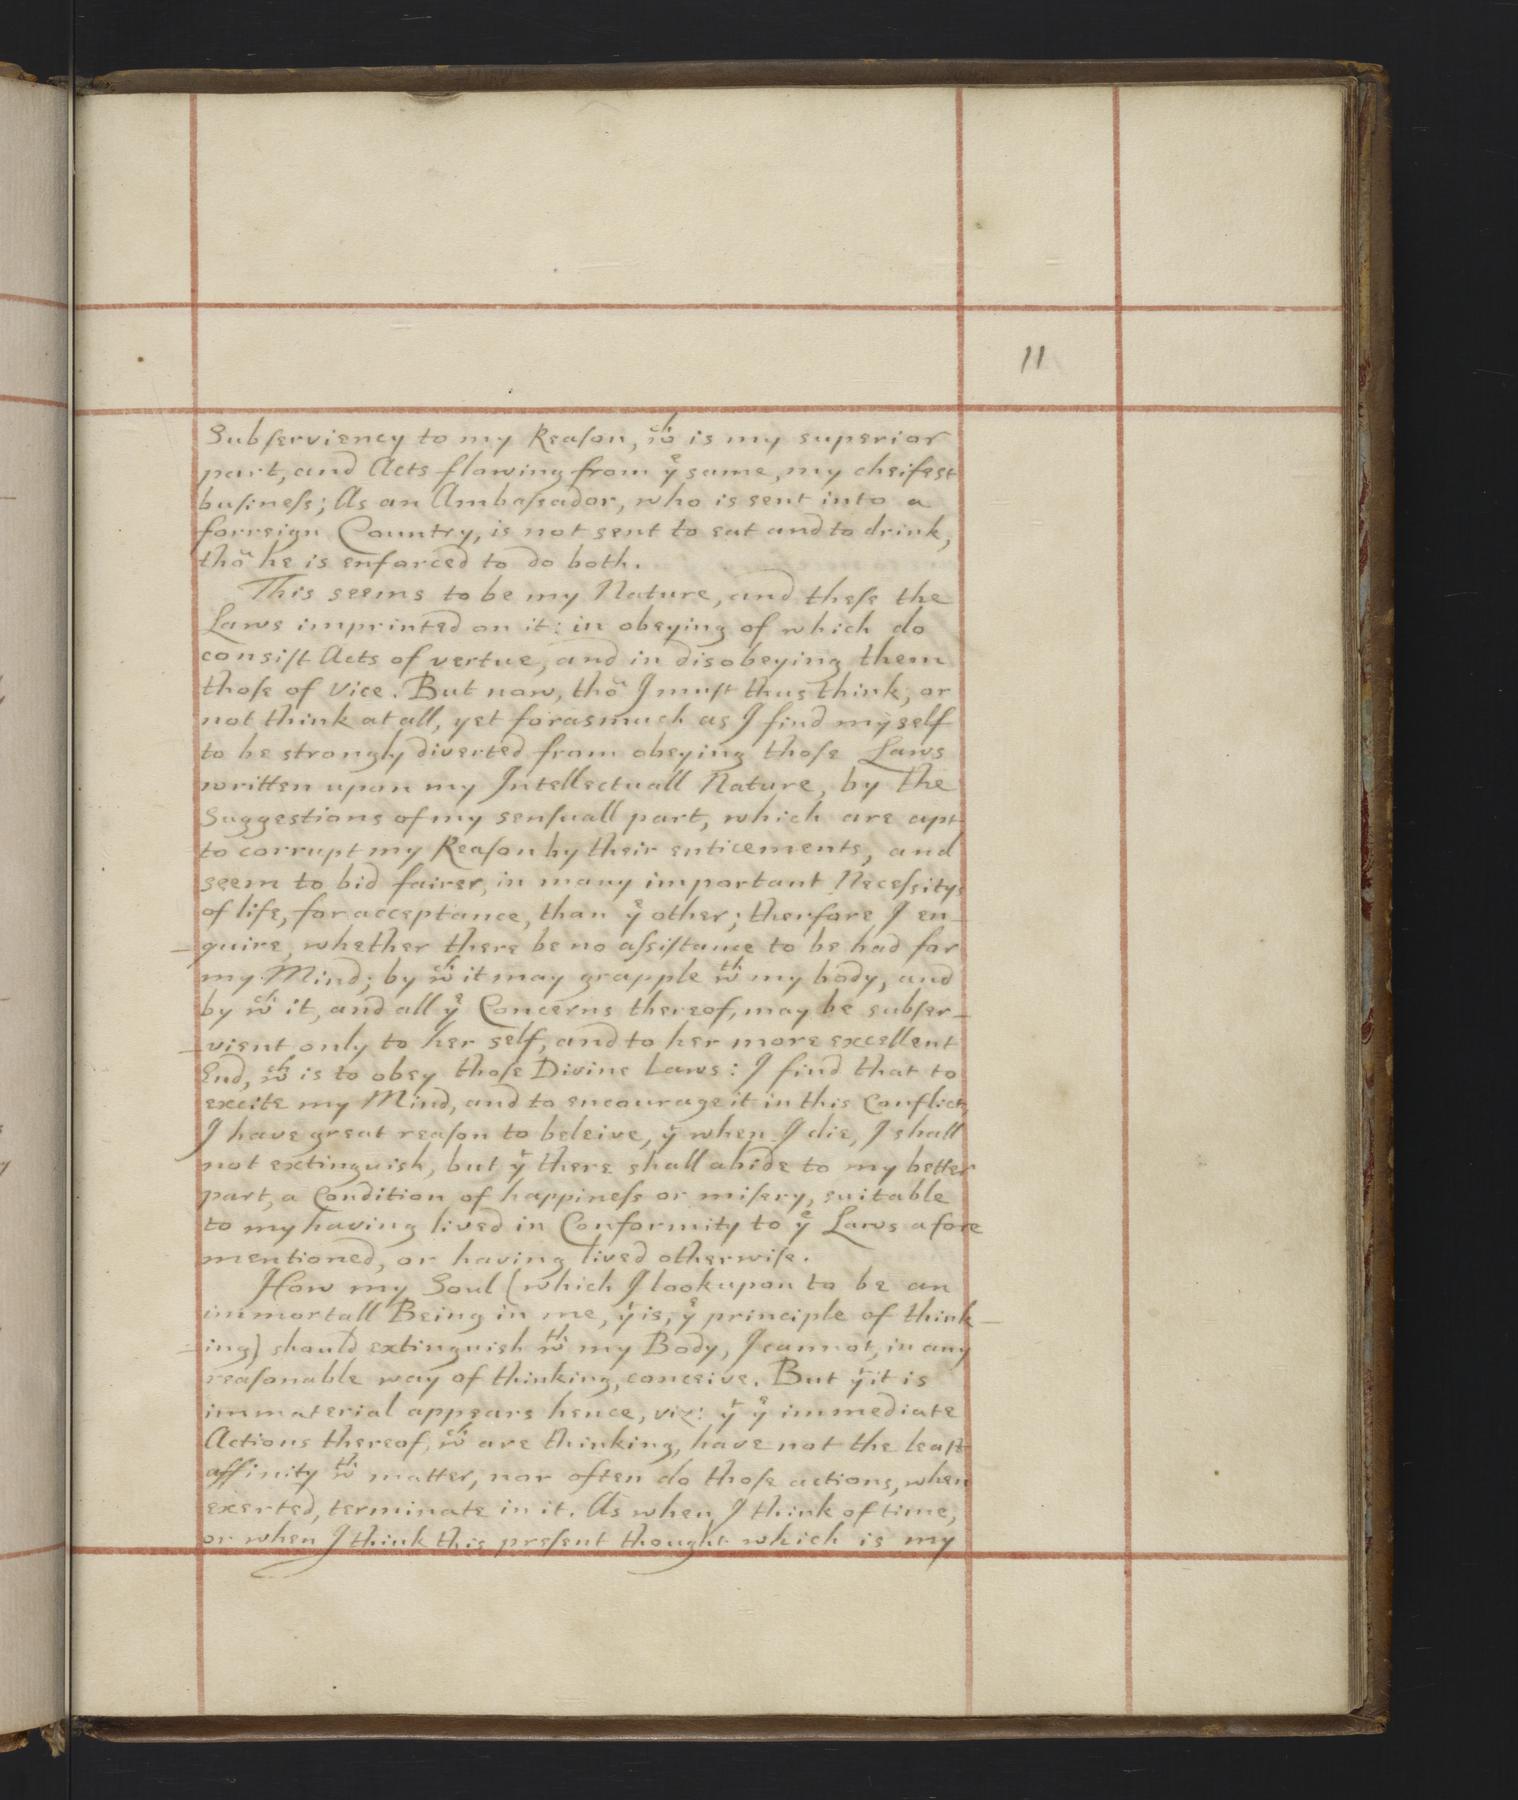 11
Subſerviency to my Reaſon, wch is my superior
part, and Acts flowing from ye same, my cheifest
buſineſs; As an Ambaſsador, who is sent into a
forreign Country, is not sent to eat and to drink,
tho he is enforced to do both.
This seems to be my Nature, and theſe the
Laws imprinted on it: in obeying of which do
consiſt Acts of vertue, and in disobeying them
thoſe of Vice. But now, tho I muſt thus think, or
not think at all, yet forasmuch as I find my self
to be strongly diverted from obeying thoſe Laws
written upon my Intellectuall Nature, by the
Suggestions of my senſuall part, which are apt
to corrupt my Reaſon by their enticements, and
seem to bid fairer, in many important Neceſsitys
of life, for acceptance, than ye other; therfore I en-
-quire, whether there be no aſsiſtance to be had for
my Mind; by wch it may grapple wth my body, and
by wch it, and all ye Concerns thereof, may be subſer-
-vient only to her self, and to her more excellent
End, wch is to obey thoſe Divine Laws: I find that to
excite my Mind, and to encourage it in this Conflict,
I have great reaſon to beleive, yt when I die, I shall
not extinguish, but yt there shall abide to my better
part, a Condition of happineſs or miſery, suitable
to my having lived in Conformity to ye Laws afore
mentioned, or having lived otherwiſe.
How my Soul (which I look upon to be an
immortall Being in me, yt is, ye principle of think-
-ing) should extinguish wth my Body, I cannot, in any
reaſonable way of thinking, conceive. But yt it is
immaterial appears hence, viz: yt ye immediate
Actions thereof, wch are thinking, have not the leaſt
affinity wth matter, nor often do thoſe actions, when
exerted, terminate in it. As when I think of time,
or when I think this preſent thought which is my